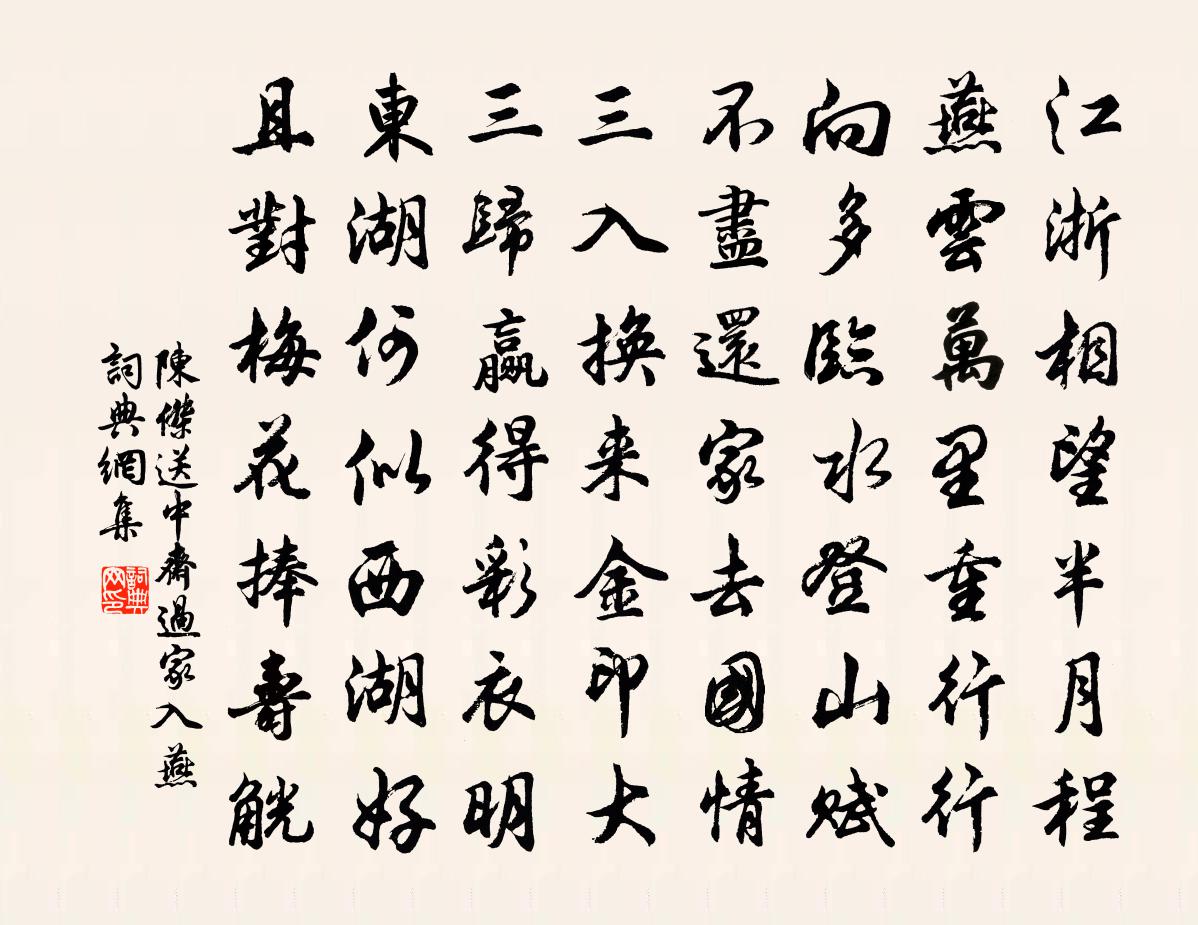 江浙相望半月程
燕雲萬里重行行
向多臨水登山賦
不盡還家去國情
三入換来金印大
三歸贏得彩衣明
東湖何似西湖好
且對梅花捧壽觥
陳傑送中齋過家入燕
詞典網集
詞典
网印